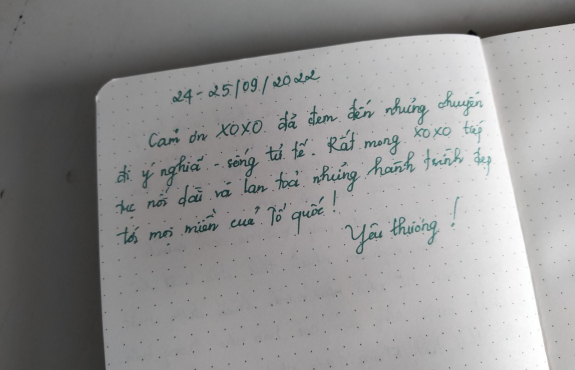 24-25/09/2022
Cảm ơn XOXO đã đem đến những chuyến
đi ý nghĩa - sống tử tế. Rất mong XOXO tiếp
tục nối dài và lan toả những hành trình đẹp
tới mọi miền của Tổ quốc!
Yêu thương!